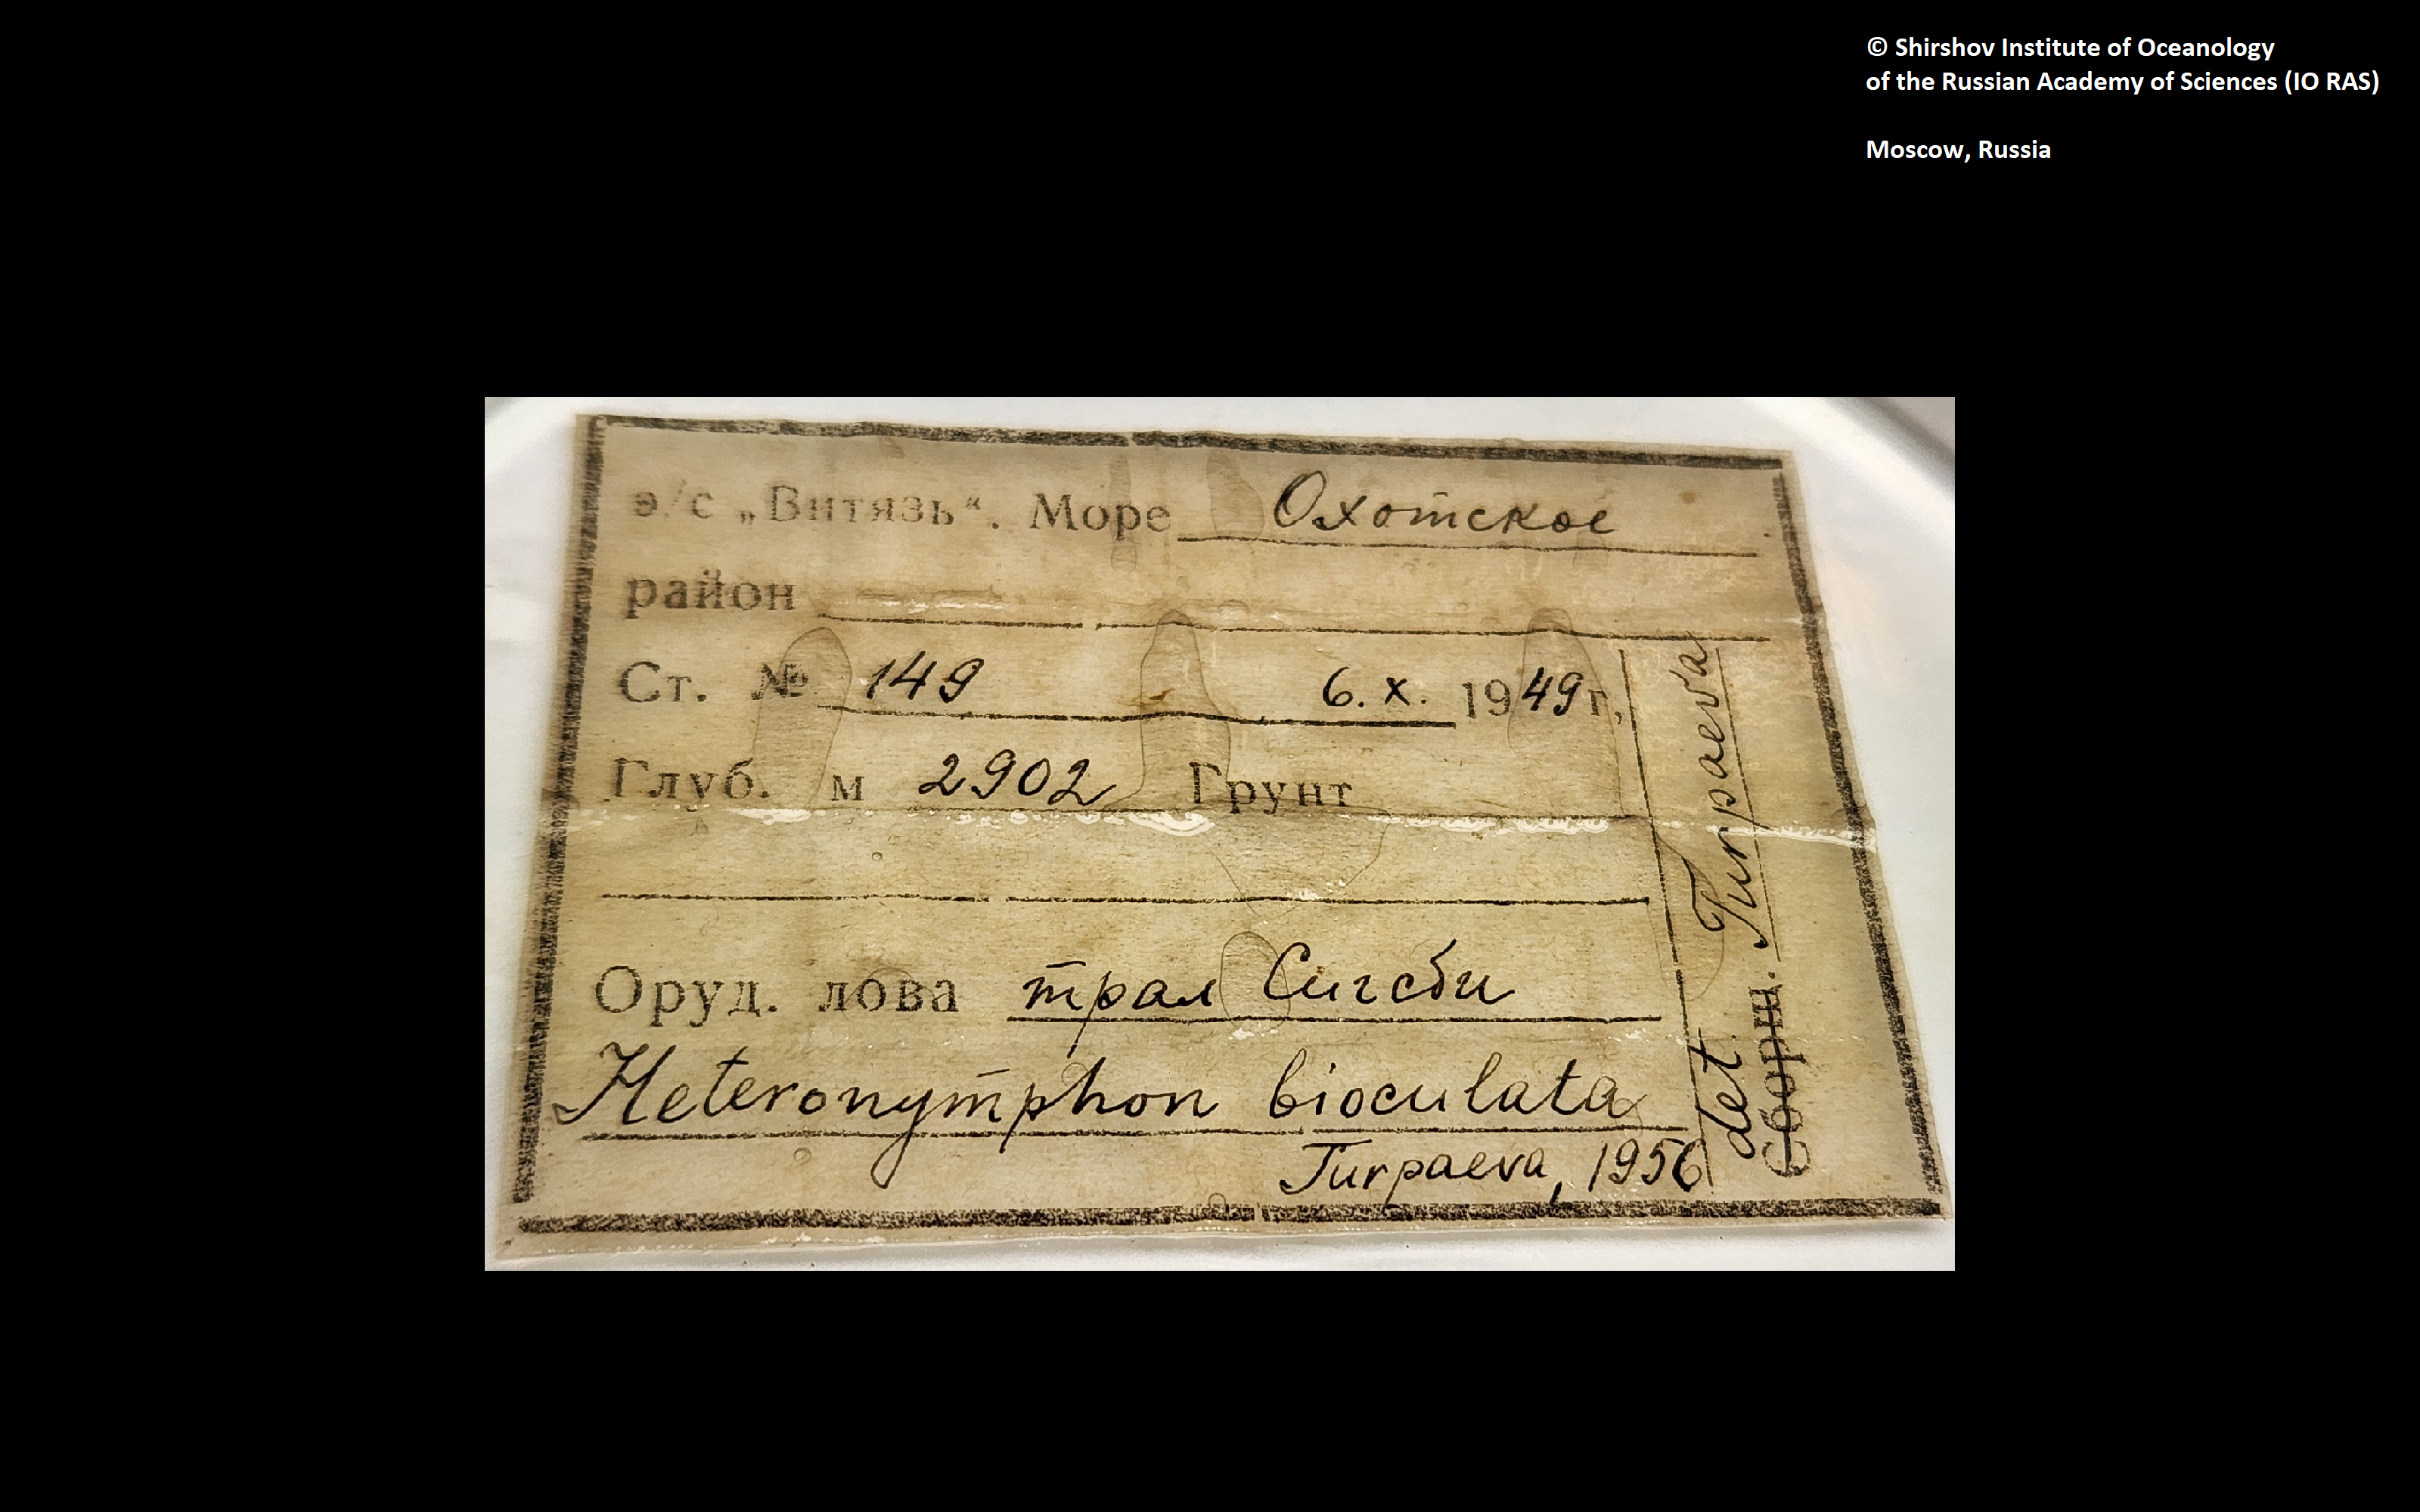 © Shirshov Institute of Oceanology
of the Russian Academy of Sciences (IO RAS)
Moscow, Russia
э/с „Витязь“. Море Охотское
район
Ст. № 149 6. x. 1949 г,
Глуб. м 2902 Грунт
Оруд. лова трал Сигсби
Heteronymphon bioculata
Turpaeva, 1956
det. Turpaeva
Сборщ.